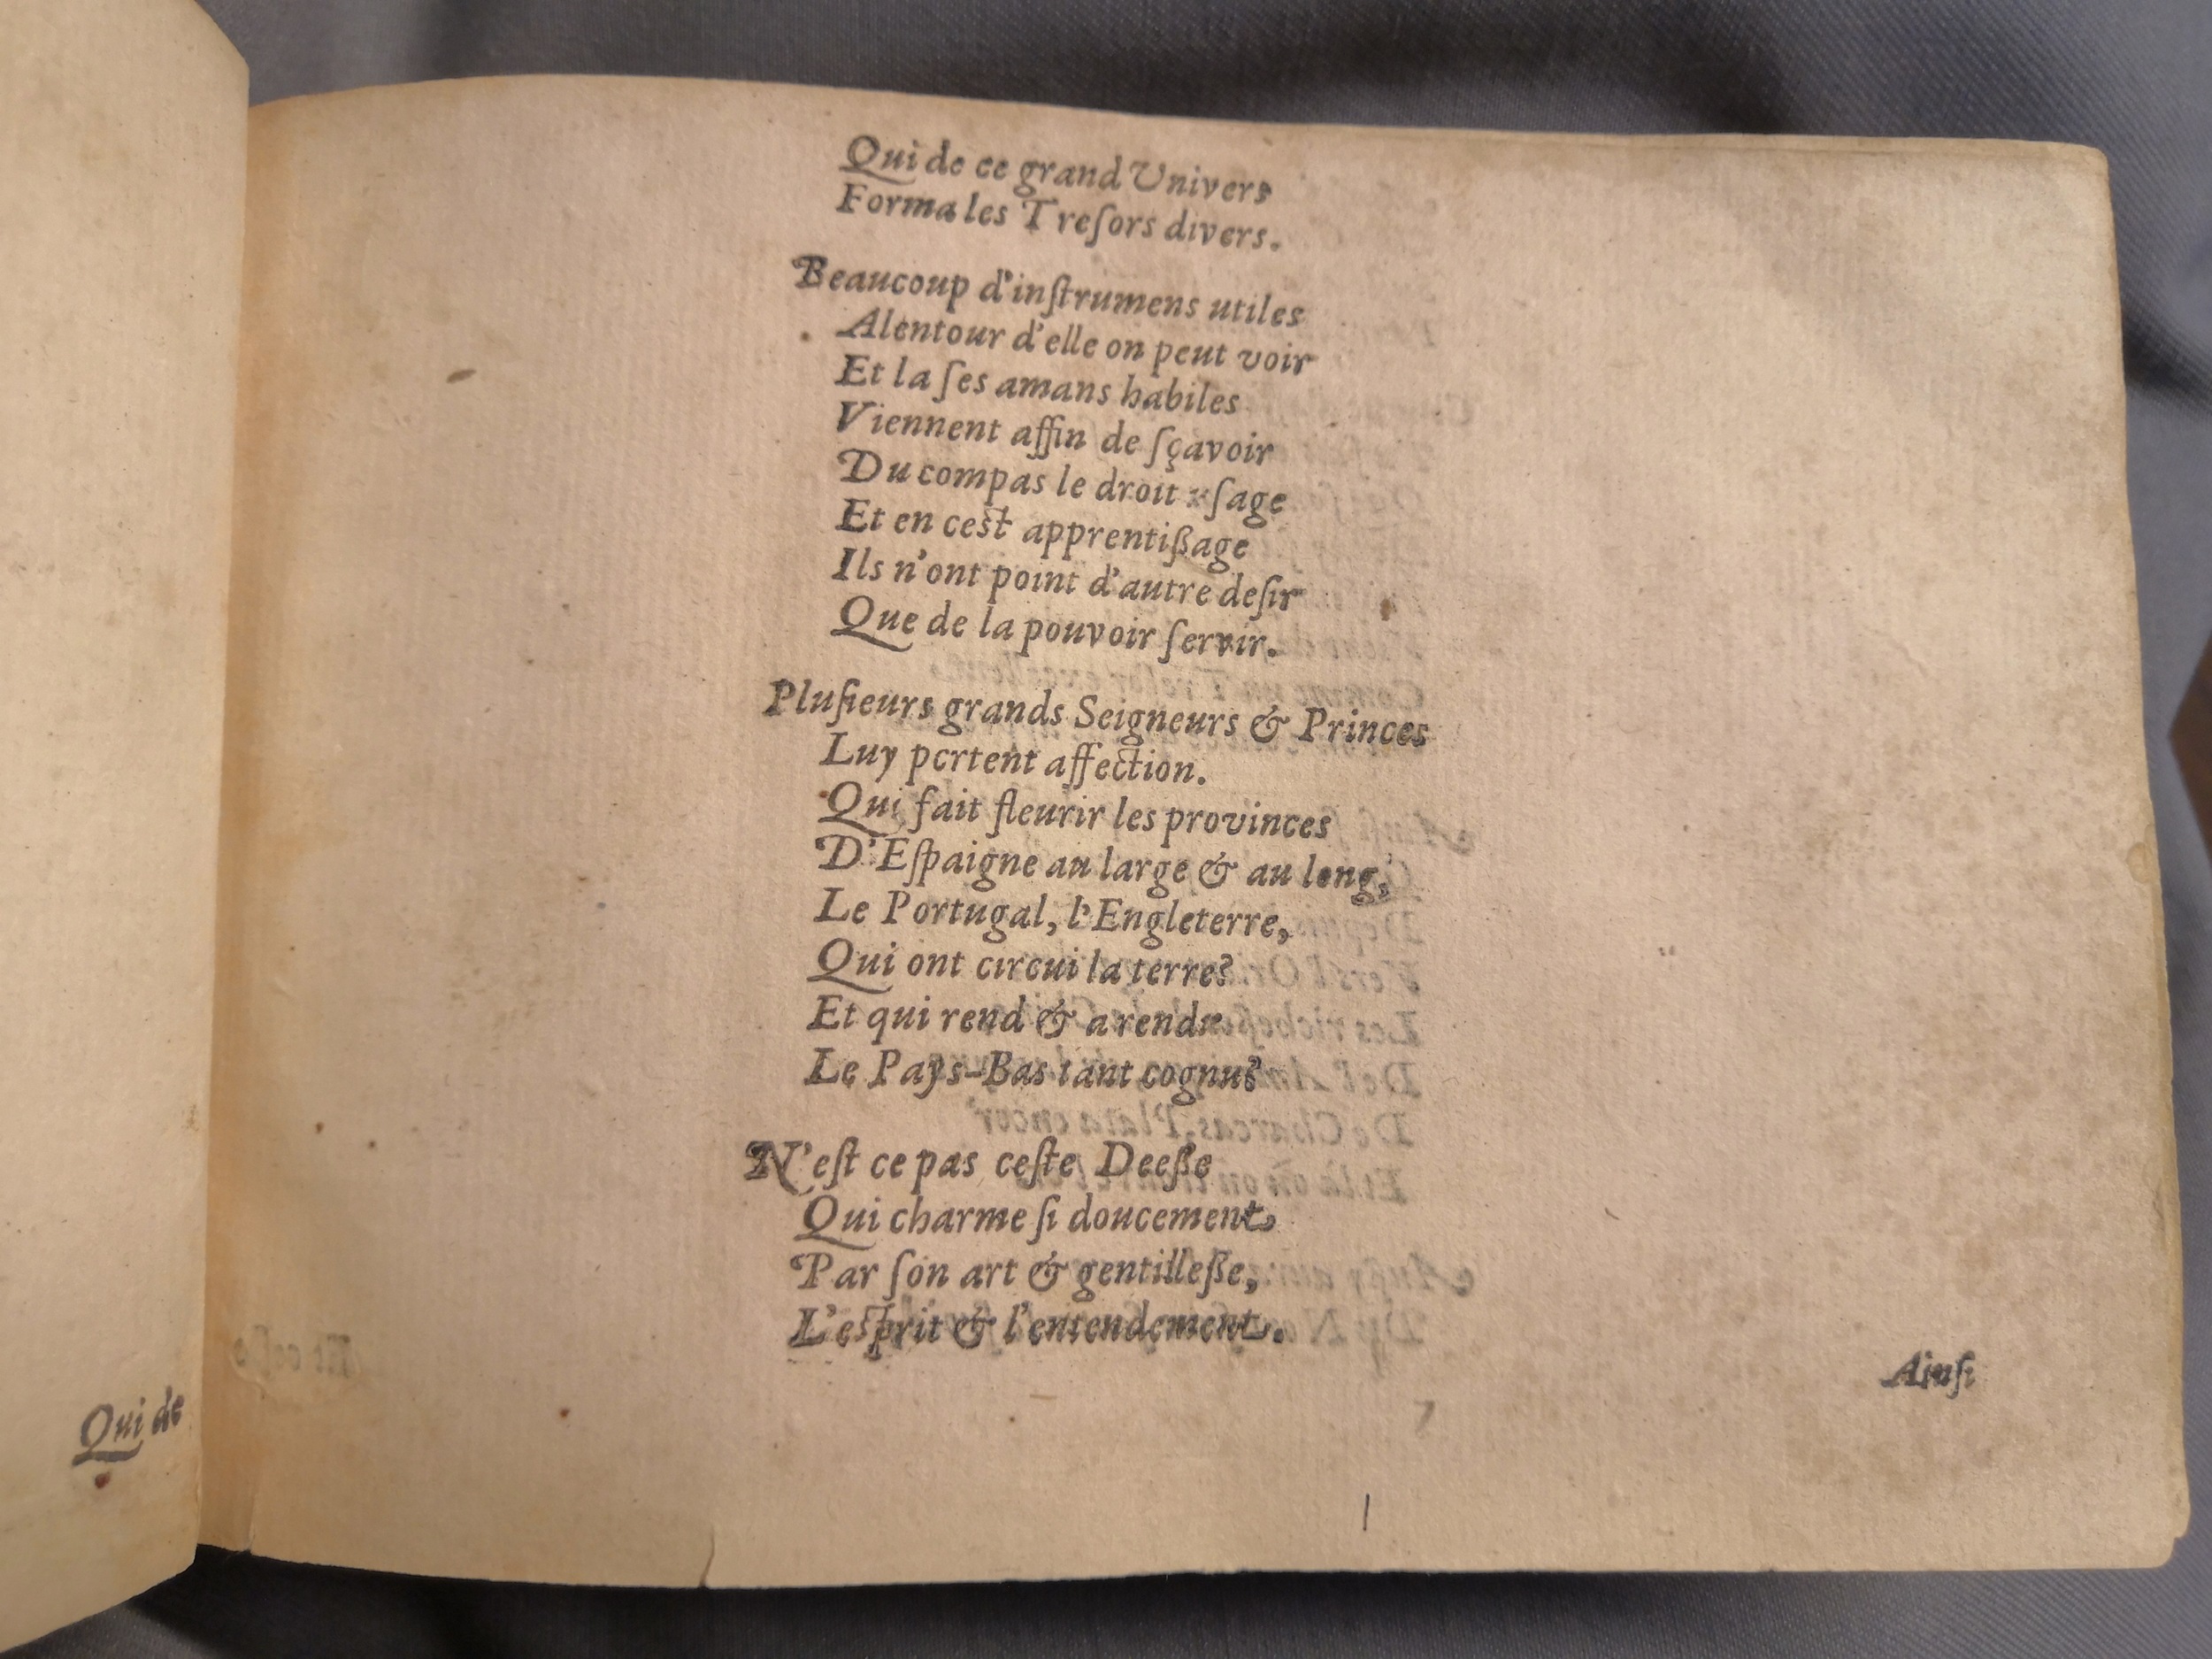 Qui de ce grand Univers
Forma les Treſors divers.
Beaucoup d'inſtrumens utiles
Alentour d'elle on peut voir
Et la ſes amans habiles
Viennent affin de ſçavoir
Du compas le droit uſage
Et en ceſt apprentißage
Ils n'ont point d'autre deſir
Que de la pouvoir ſervir.
Pluſieurs grands Seigneurs & Princes
Luy portent affection.
Qui fait fleurir les provinces
D'Eſpaigne au large & au long,
Le Portugal, l'Engleterre,
Qui ont circui la terre?
Et qui rend & a rendu
Le Pays-Bas tant cognu?
N'eſt ce pas ceſte Deeße
Qui charme ſi doucement,
Par ſon art & gentilleße,
L'eſprit & l'entendement.
Ainſi
Qui de